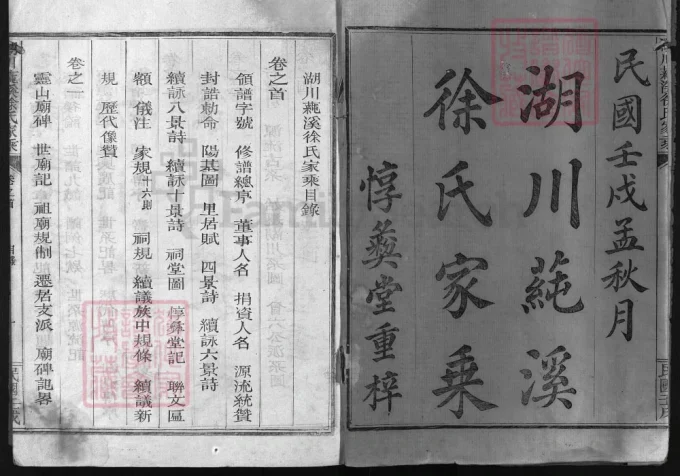 民國壬戌孟秋月
湖川蒓溪
徐氏家乘
惇彜堂重梓
湖川蒓溪徐氏家乘目錄
卷之首
領譜字號 修譜總序 董事人名 捐資人名 源流統贊
封誥勅命 陽基圖 里居賦 四景詩 續詠六景詩
續詠八景詩 續詠十景詩 祠堂圖 惇彜堂記 聯文區
額 儀注 家規十六則 祠規 續議族中規條 續議新
規 歷代像贊
卷之一
靈山廟碑 世廟記 祖廟規制 遷居支派 廟碑記畧